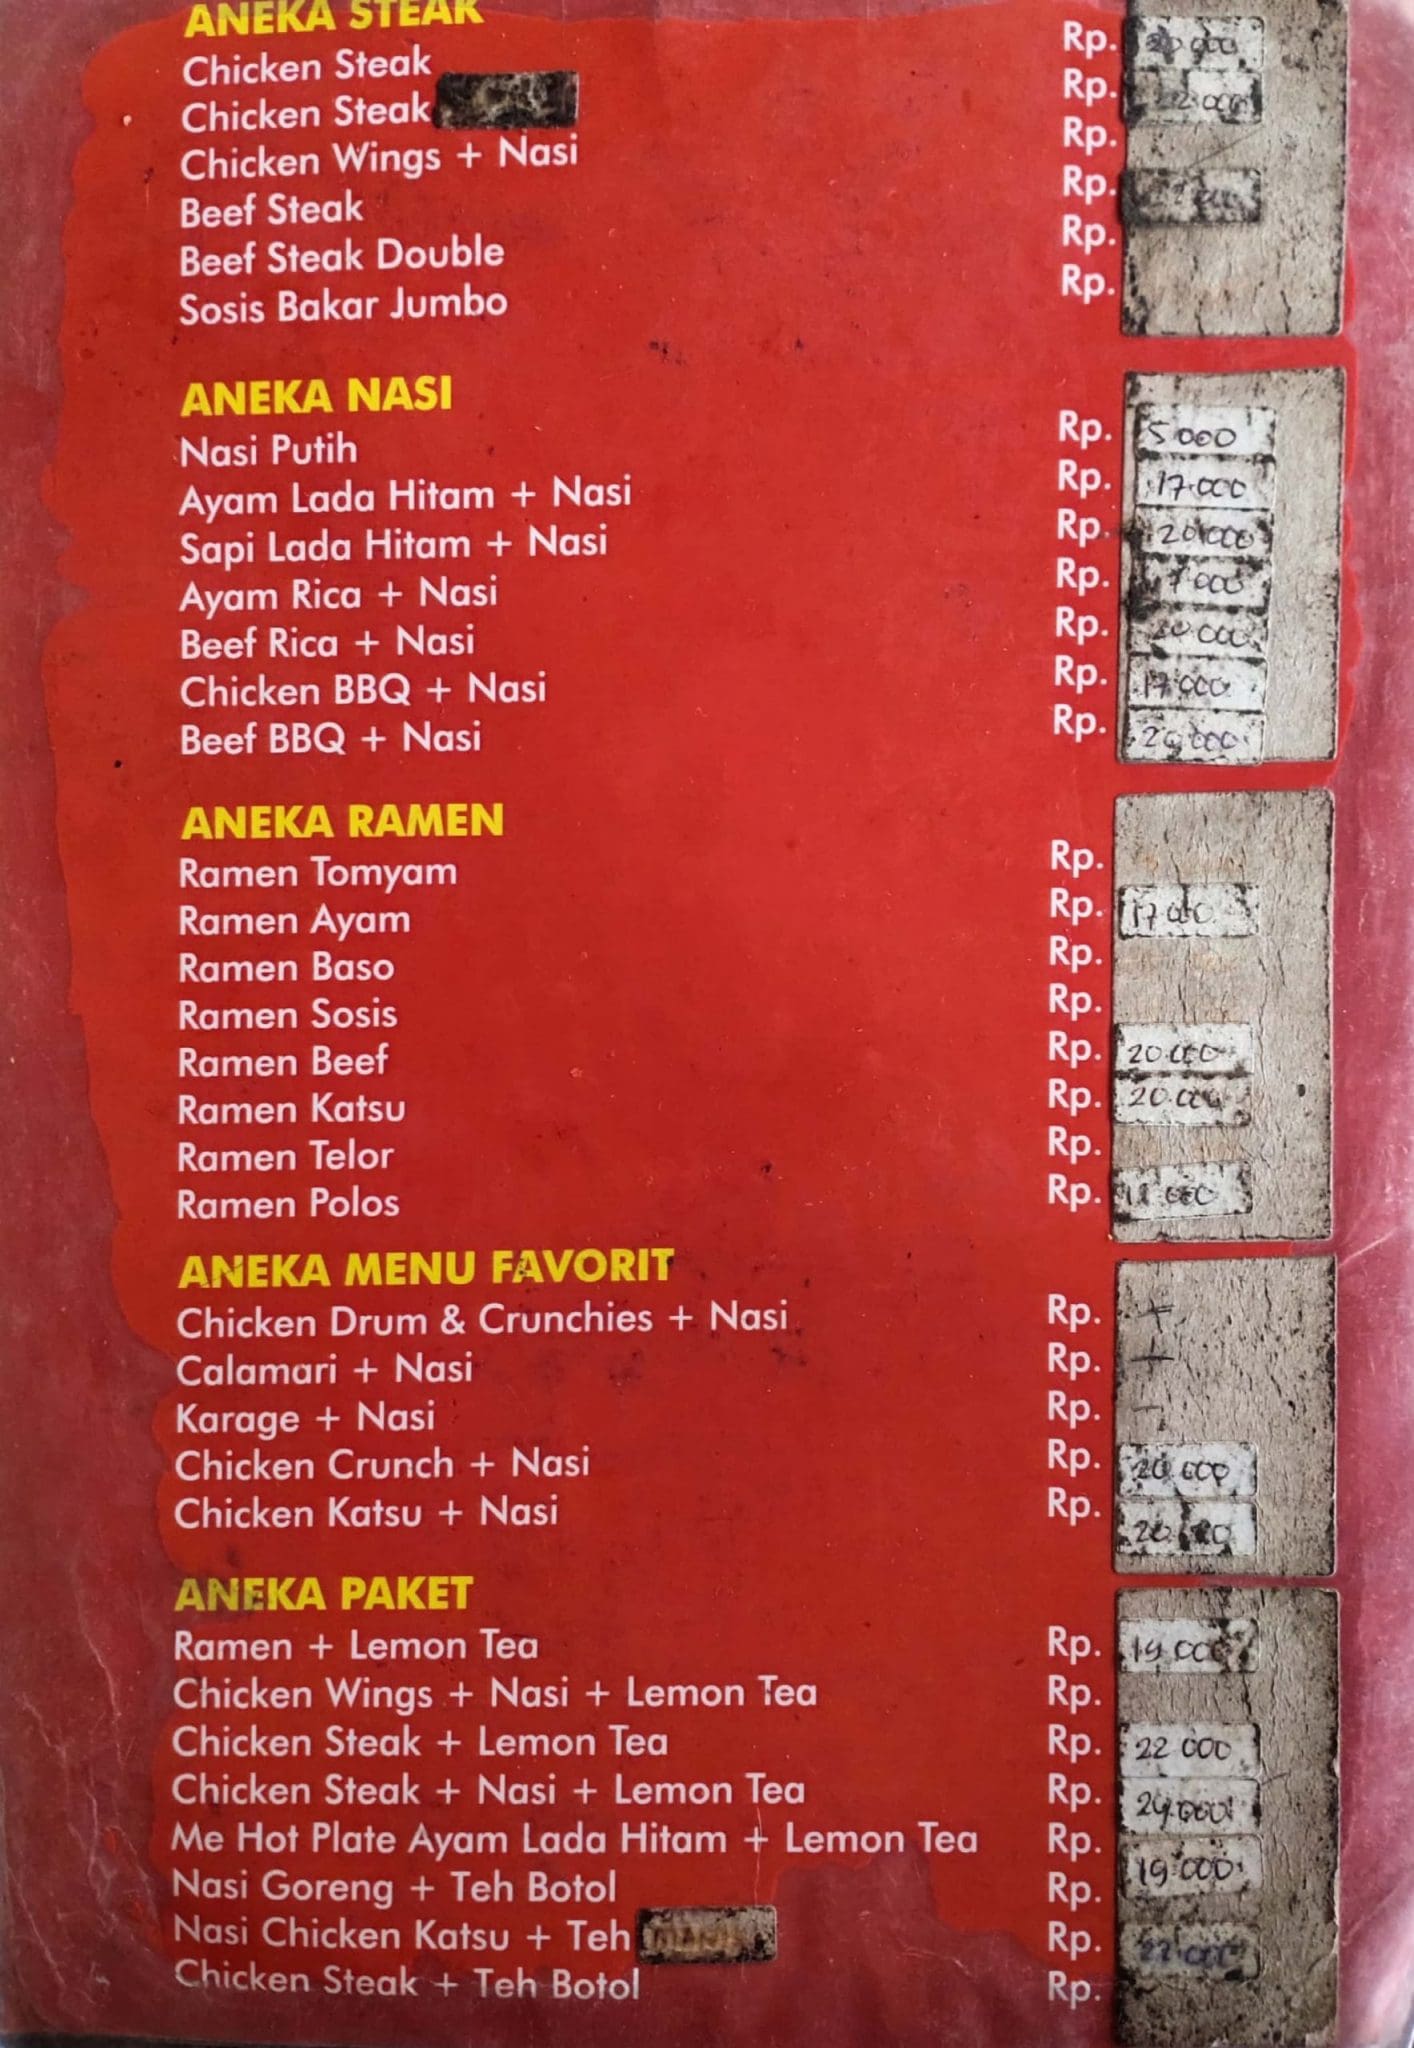 ANEKA STEAK
Chicken Steak Rp. 20 000
Chicken Steak Rp. 22.000
Chicken Wings + Nasi Rp.
Beef Steak Rp.
Beef Steak Double Rp.
Sosis Bakar Jumbo Rp.
ANEKA NASI
Nasi Putih Rp. 5 000
Ayam Lada Hitam + Nasi Rp. 17.000
Sapi Lada Hitam + Nasi Rp. 20.000
Ayam Rica + Nasi Rp.
Beef Rica + Nasi Rp. 20 000
Chicken BBQ + Nasi Rp. 17 000
Beef BBQ + Nasi Rp. 20.000
ANEKA RAMEN
Ramen Tomyam Rp.
Ramen Ayam Rp. 17 000
Ramen Baso Rp.
Ramen Sosis Rp.
Ramen Beef Rp. 20.000
Ramen Katsu Rp. 20.000
Ramen Telor Rp.
Ramen Polos Rp.
ANEKA MENU FAVORIT
Chicken Drum & Crunchies + Nasi Rp.
Calamari + Nasi Rp.
Karage + Nasi Rp.
Chicken Crunch + Nasi Rp. 20.000
Chicken Katsu + Nasi Rp.
ANEKA PAKET
Ramen + Lemon Tea Rp. 19 000
Chicken Wings + Nasi + Lemon Tea Rp.
Chicken Steak + Lemon Tea Rp. 22 000
Chicken Steak + Nasi + Lemon Tea Rp. 24.000
Me Hot Plate Ayam Lada Hitam + Lemon Tea Rp. 19.000
Nasi Goreng + Teh Botol Rp.
Nasi Chicken Katsu + Teh Rp. 22.000
Chicken Steak + Teh Botol Rp.